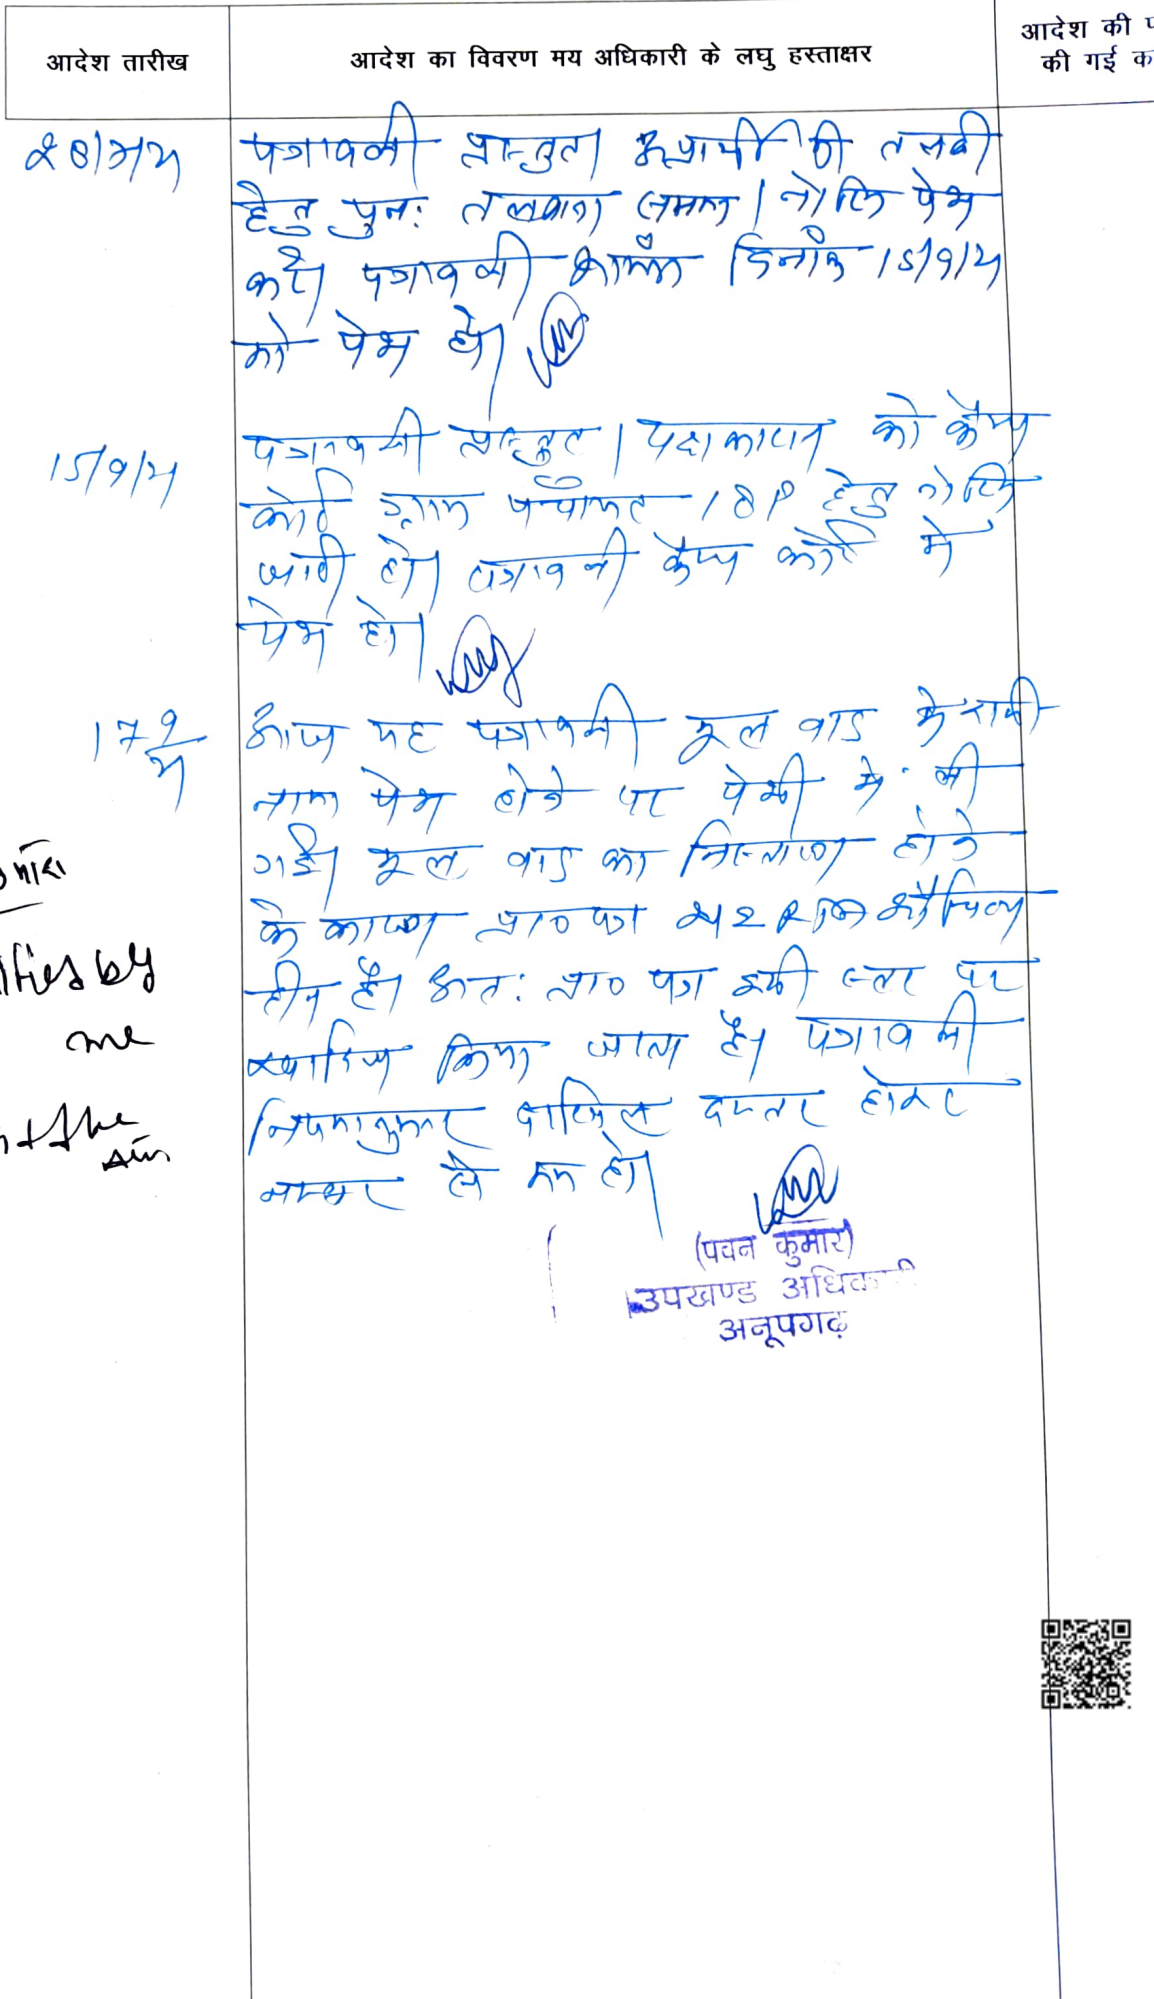 आदेश तारीख
आदेश का विवरण मय अधिकारी के लघु हस्ताक्षर
आदेश की
की गई
पत्रावली प्रस्तुत। अप्रार्थी की तलबी
हेतु पुनः तलवाना सम्मन / नोटिस पेश
करें। पत्रावली दिनांक 15/9/21
को पेश हो।
15/9/21
पत्रावली प्रस्तुत। पक्षकारान को कैम्प
कोर्ट ग्राम पंचायत 18P हेतु नोटिस
जारी हो। पत्रावली कैम्प कोर्ट में
पेश हो।
17 9/21
आज यह पत्रावली मूल वाद के साथ
पेश होने पर पेशी में ली
गई। मूल वाद का निस्तारण होने
के कारण प्रा० पत्र 212 औचित्य
हीन है। अतः प्रा० पत्र इसी स्तर पर
खारिज किया जाता है। पत्रावली
नियमानुसार दाखिल दफ्तर होकर
नम्बर से कम हो।
by
me
the
(पवन कुमार)
उपखण्ड अधिकारी
अनूपगढ़